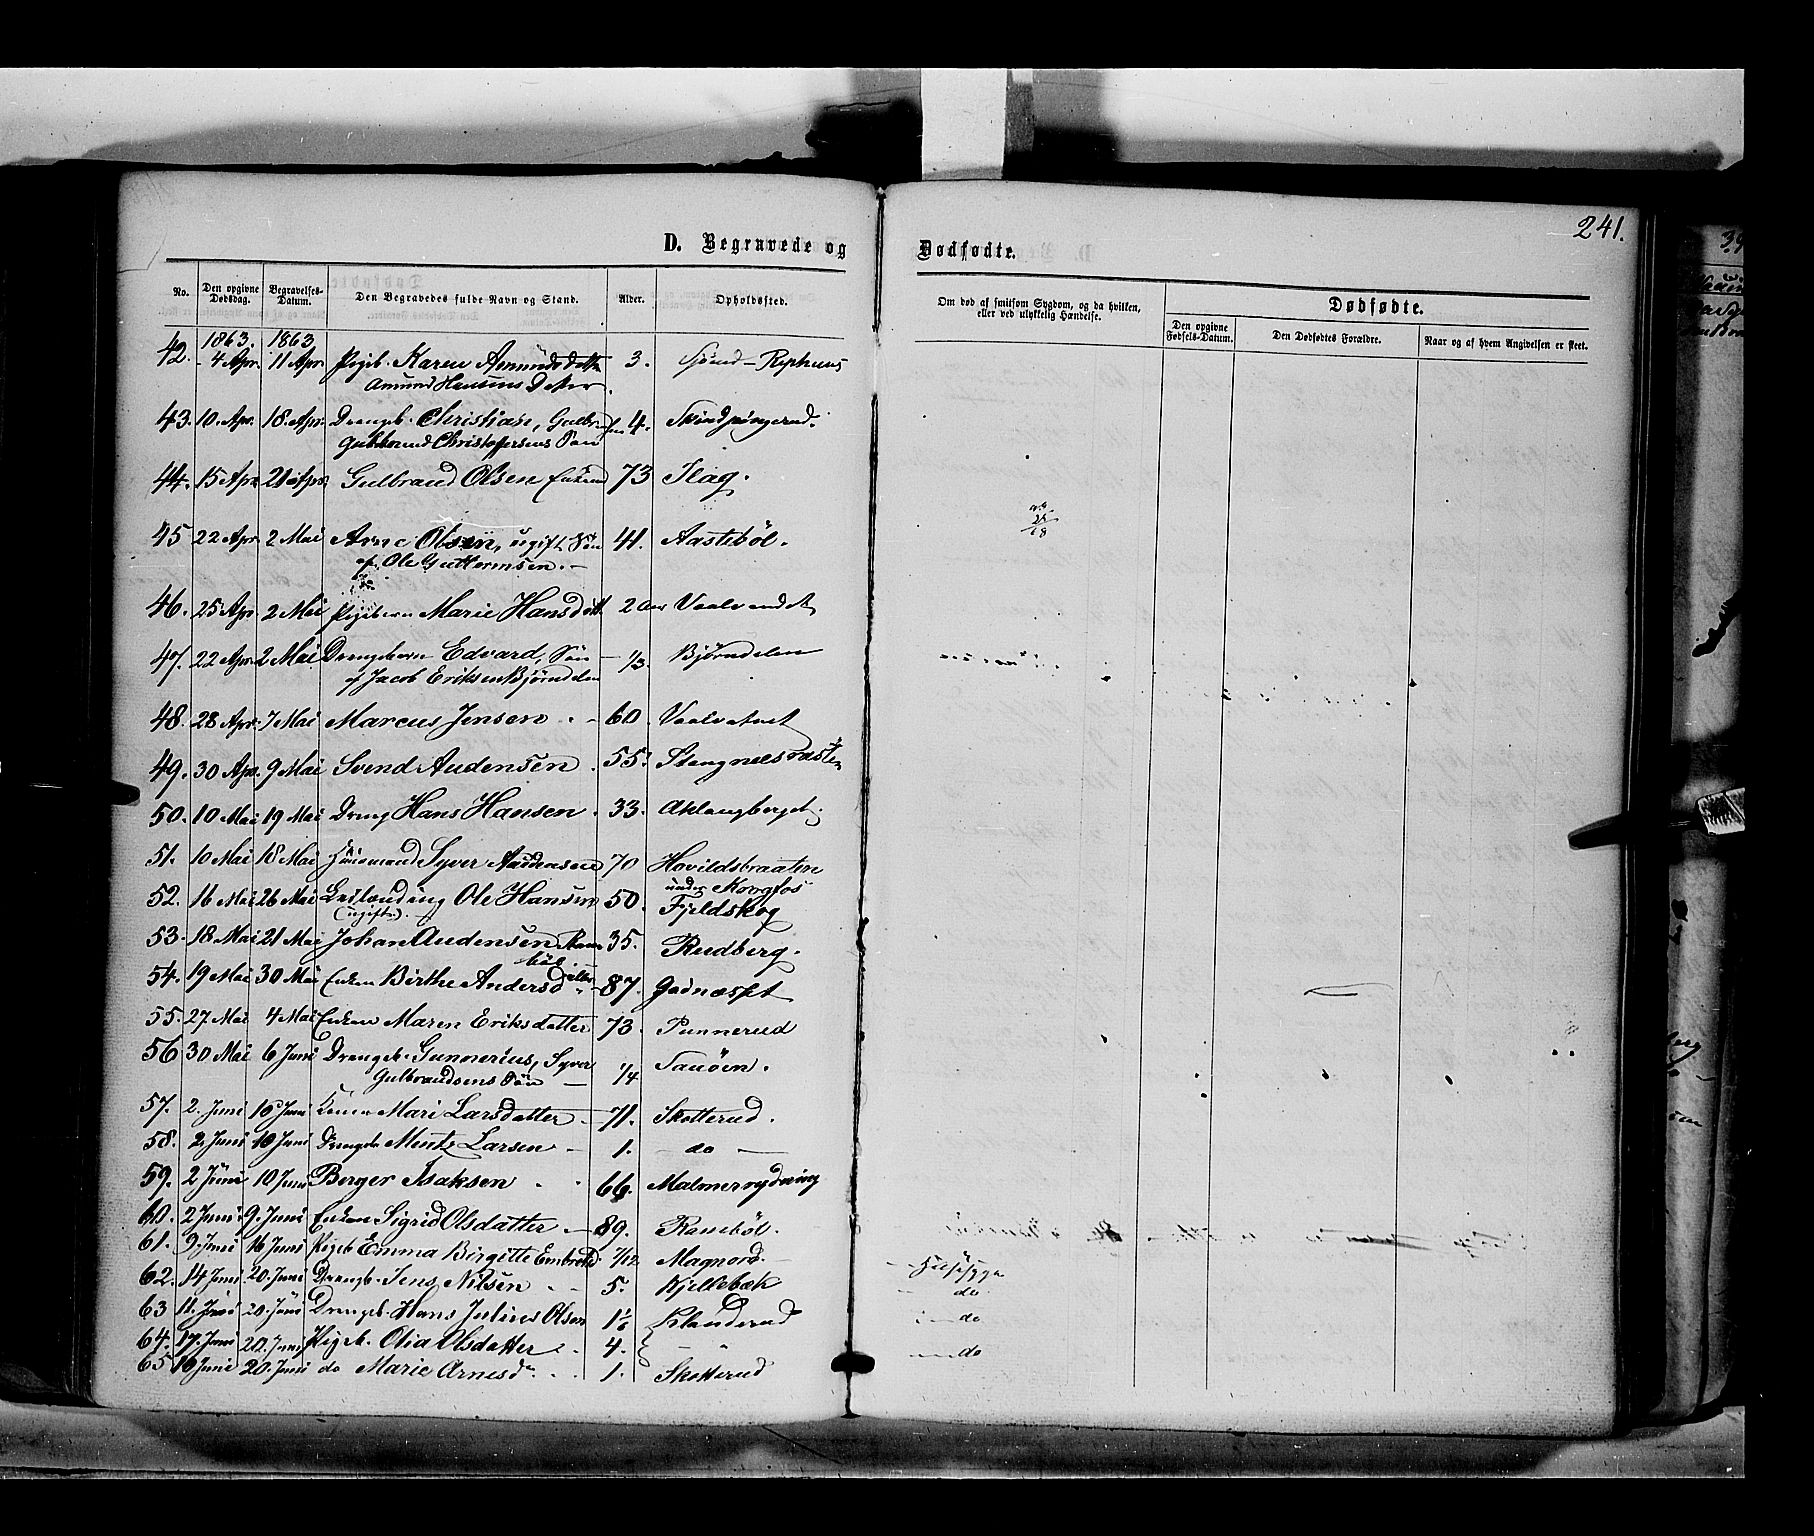 241.
D. Begravede og Dødfødte.
No. Den opgivne Dødsdag. Begravelses-Datum. Den Begravedes fulde Navn og Stand. Alder. Opholdssted. Om død af smitsom Sygdom, og da hvilken, eller ved ulykkelig Hændelse. Dødfødte.
Den opgivne Fødsels-Datum. Den Dødfødtes Forældre. Naar og af hvem Angivelsen er skeet.
1863. 1863
42. 4 Apr. 11 Apr. Pigeb. Karen Amunds Datter 3.
Amund Hansens Datter.
43. 10 Apr. 18. Apr. Drengeb. Christian, 4.
Gulbrand Christoffersens Søn
44. 15 Apr. 21 Apr. Gulbrand Olsen 73 Ilag.
45 22 Apr. 2 Mai Arne Olsen, ugift Søn 41. Aastebøl.
af Ole Guttormsen.
46. 25 Apr. 2 Mai Pigebarn Marie Hansdatt 2 Aar
47. 22 Apr. 2 Mai Drengebarn Edvard, Søn 1/3. Bjørndalen
af Jacob Eriksen Bjørndalen
48. 28 Apr. 7 Mai Marcus Jensen 60.
49. 30 Apr. 9 Mai Svend Audensen 55.
50. 10 Mai 19 Mai Dreng Hans Hansen 33. Aklangberget.
51. 10 Mai 18 Mai Huusmand Syver Audensen 70 Hovildsbraaten
under Kongfos
52. 16 Mai 26 Mai Ole Hansen 50. Fjeldskog
(ugift).
53. 18 Mai 21 Mai Johan Audensen Rane 35. Rudberg.
bøl.
54. 19 Mai 30 Mai Enken Birthe Andersdatter 87.
55. 27 Mai 4 Mai Enken Maren Eriksdatter 73. Punnerud
56 30 Mai 6 Juni Drengeb. Gunnerius, Syver 1/4
Gulbrandsens Søn
57. 2. Juni 10 Juni Konen Mari Larsdatter 71. Skotterud.
58. 2 Juni 10 Juni Drengeb Larsen 1. do
59. 2 Juni 10 Juni Berger Isaksen 66. Malmerrydning
60. 2 Juni 9. Juni Enken Sigrid Olsdatter 89. Ranebøl.
61. 9. Juni 16 Juni Pigeb Emma Birgitte 7/12 Magnord.
62. 14 Juni 20. Juni Drengb. Jens Nilsen 5. Kjellebæk do
63 11. Juni 20. Juni Drengeb. Hans Julius Olsen
64. 17. Juni 20. Juni Pigeb. Olia Olsdatter 4. do
65 10 Juni 20. Juni do Marie Arnesd. 1. Skotterud do